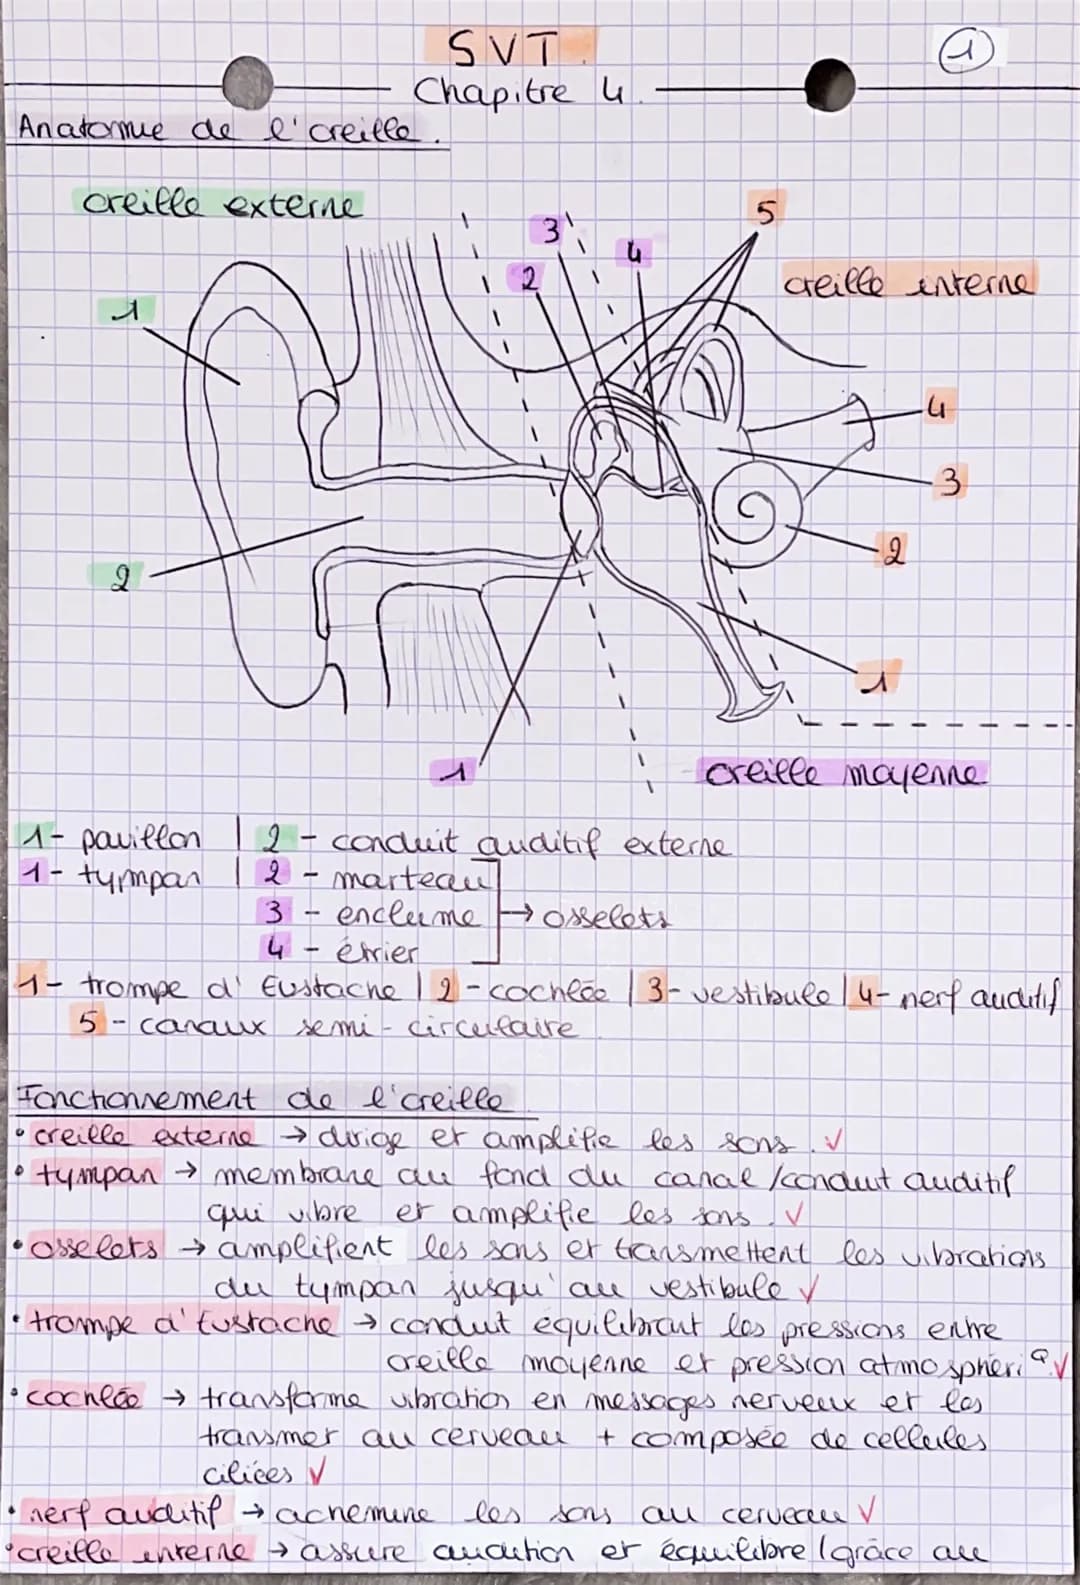 SVT.
1
Chapitre 4.
Anatomie de l'oreille.
oreille externe
3
5
4
2
oreille interne
1
4
3
2
2
1
1
oreille moyenne
1- pavillon | 2 - conduit auditif externe
1- tympan | 2 - marteau
3 - enclume → osselets
4 - étrier
1- trompe d'Eustache | 2 - cochlée | 3- vestibule | 4- nerf auditif
5 - canaux semi-circulaire
Fonctionnement de l'oreille
• oreille externe → dirige et amplifie les sons. ✓
• tympan → membrane au fond du canal /conduit auditif
qui vibre et amplifie les sons. ✓
• osselets → amplifient les sons et transmettent les vibrations
du tympan jusqu'au vestibule ✓
• trompe d'Eustache → conduit équilibrant les pressions entre
oreille moyenne et pression atmosphériQ ✓
• cochlée → transforme vibration en messages nerveux et les
transmet au cerveau + composée de cellules
ciliées ✓
• nerf auditif → achemine les sons au cerveau ✓
• oreille interne → assure audition et équilibre (grâce au